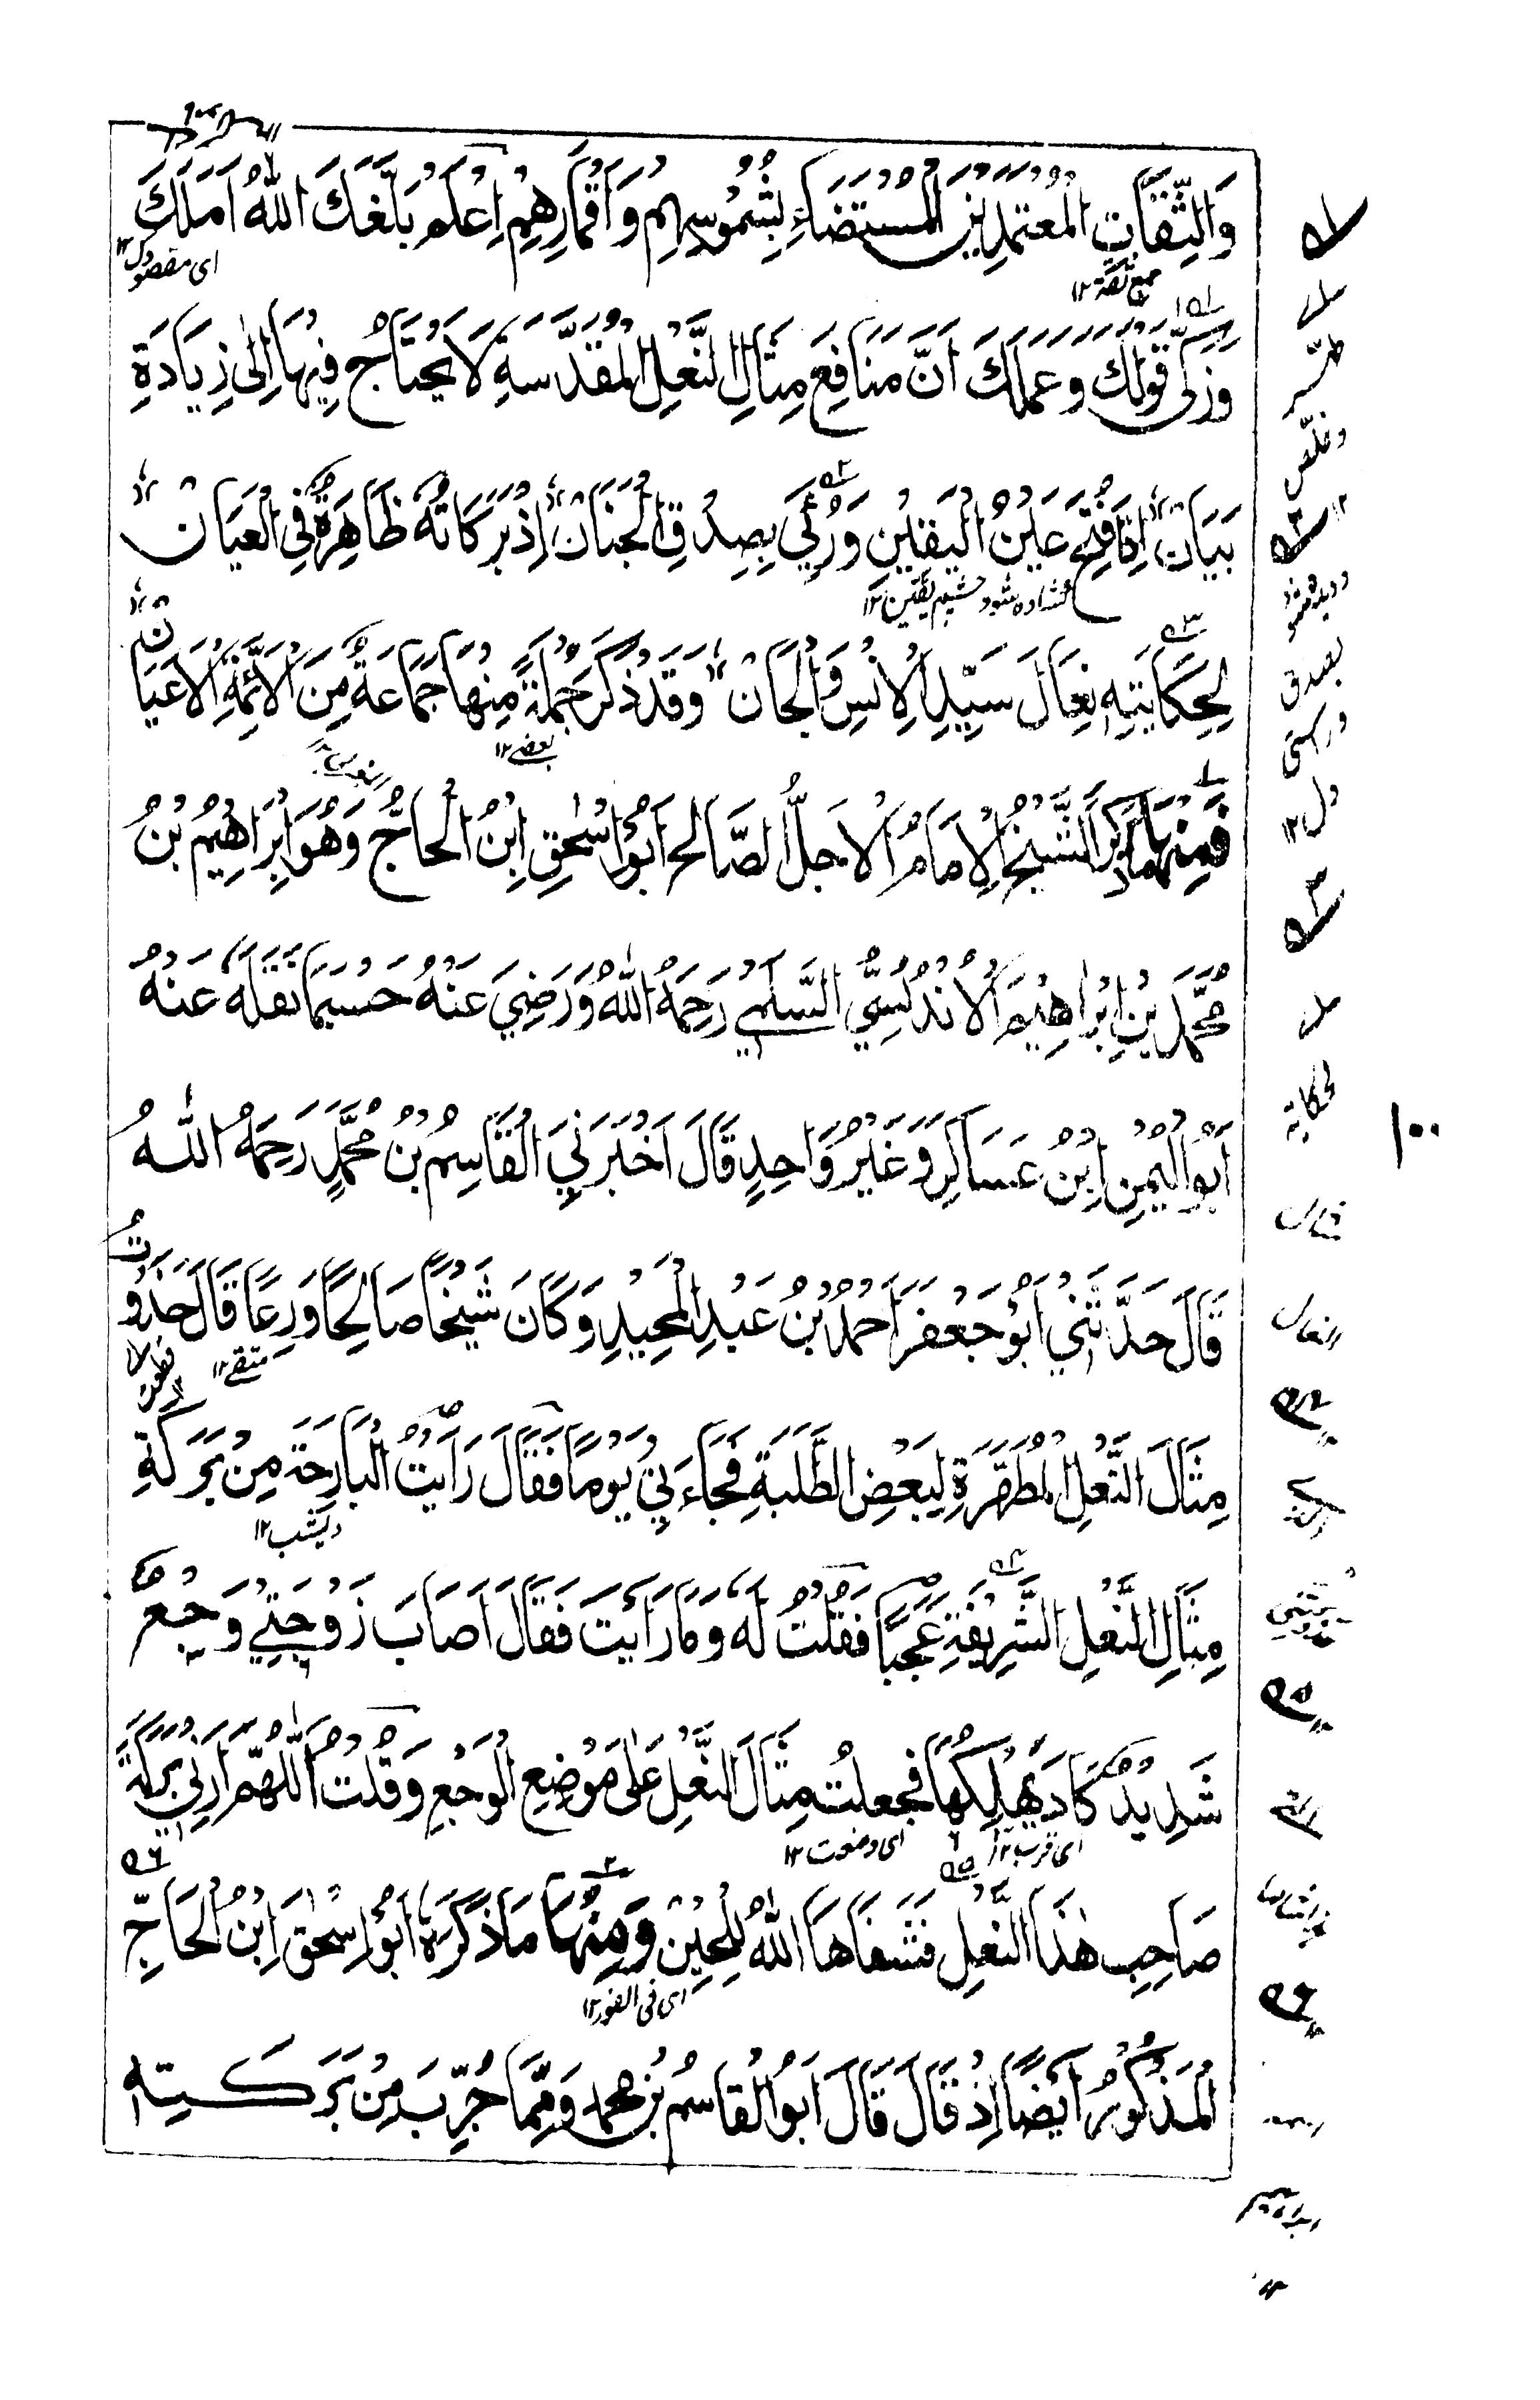 وَالثِّقَاتِ الْمُعْتَمَدِيْنَ الْمُسْتَضَاءِ بِشُمُوْسِهِمْ وَاَقْمَارِهِمْ اِعْلَمْ بَلَّغَكَ اللّٰهُ اَمَلَكَ
جمع ثقة ١٢
اى مقصودك ١٢
وَزَكّٰى قَوْلَكَ وَعَمَلَكَ اَنَّ مَنَافِعَ مِثَالِ النَّعْلِ الْمُقَدَّسَةِ لَا يَحْتَاجُ فِيْهَا اِلٰى زِيَادَةِ
بَيَانْ اِذَا فُتِحَ عَيْنُ الْيَقِيْنِ وَرُئِيَ بِصِدْقِ الْجَنَانْ اِذْ بَرَكَاتُهٗ ظَاهِرَةٌ فِى الْعَيَانْ
كشاده شود چشم يقين ١٢
لِحِكَايَتِهٖ نِعَالَ سَيِّدِ الْاِنْسِ وَالْجَانْ وَقَدْ ذَكَرَ جُمْلَةً مِنْهَا جَمَاعَةٌ مِنَ الْاَئِمَّةِ الْاَعْيَانْ
بعضے ١٢
فَمِنْهَا مَا ذَكَرَ الشَّيْخُ الْاِمَامُ الْاَجَلُّ الصَّالِحُ اَبُوْ اِسْحٰقَ ابْنُ الْحَاجِّ وَهُوَ اِبْرَاهِيْمُ بْنُ
مُحَمَّدِ بْنِ اِبْرَاهِيْمَ الْاَنْدُلُسِيُّ السُّلَمِيُّ رَحِمَهُ اللّٰهُ وَرَضِيَ عَنْهُ حَسْبَمَا نَقَلَهٗ عَنْهُ
اَبُو الْيُمْنِ ابْنُ عَسَاكِرَ وَغَيْرُ وَاحِدٍ قَالَ اَخْبَرَنِي الْقَاسِمُ بْنُ مُحَمَّدٍ رَحِمَهُ اللّٰهُ
قَالَ حَدَّثَنِيْ اَبُوْ جَعْفَرَ اَحْمَدُ بْنُ عَبْدِ الْمَجِيْدِ وَكَانَ شَيْخًا صَالِحًا وَرِعًا قَالَ حَذَوْتُ
متقى ١٢
مِثَالَ النَّعْلِ الْمُطَهَّرَةِ لِبَعْضِ الطَّلَبَةِ فَجَاءَنِيْ يَوْمًا فَقَالَ رَاَيْتُ الْبَارِحَةَ مِنْ بَرَكَةِ
ديشب ١٢
مِثَالِ النَّعْلِ الشَّرِيْفَةِ عَجَبًا فَقُلْتُ لَهٗ وَمَا رَاَيْتَ فَقَالَ اَصَابَ زَوْجَتِيْ وَجَعٌ
شَدِيْدٌ كَادَ يُهْلِكُهَا فَجَعَلْتُ مِثَالَ النَّعْلِ عَلٰى مَوْضِعِ الْوَجَعِ وَقُلْتُ اَللّٰهُمَّ اَرِنِيْ بَرَكَةَ
اى قرب ١٢
اى وضعت ١٢
صَاحِبِ هٰذَا النَّعْلِ فَشَفَاهَا اللّٰهُ لِلْحِيْنْ وَمِنْهَا مَا ذَكَرَهٗ اَبُوْ اِسْحٰقَ ابْنُ الْحَاجِّ
اى فى الفور ١٢
الْمَذْكُوْرُ اَيْضًا اِذْ قَالَ قَالَ اَبُو الْقَاسِمِ بْنُ مُحَمَّدٍ وَمِمَّا جُرِّبَ مِنْ بَرَكَتِهٖ
بصدق
دل ١٢
لحكايته
١٠٠